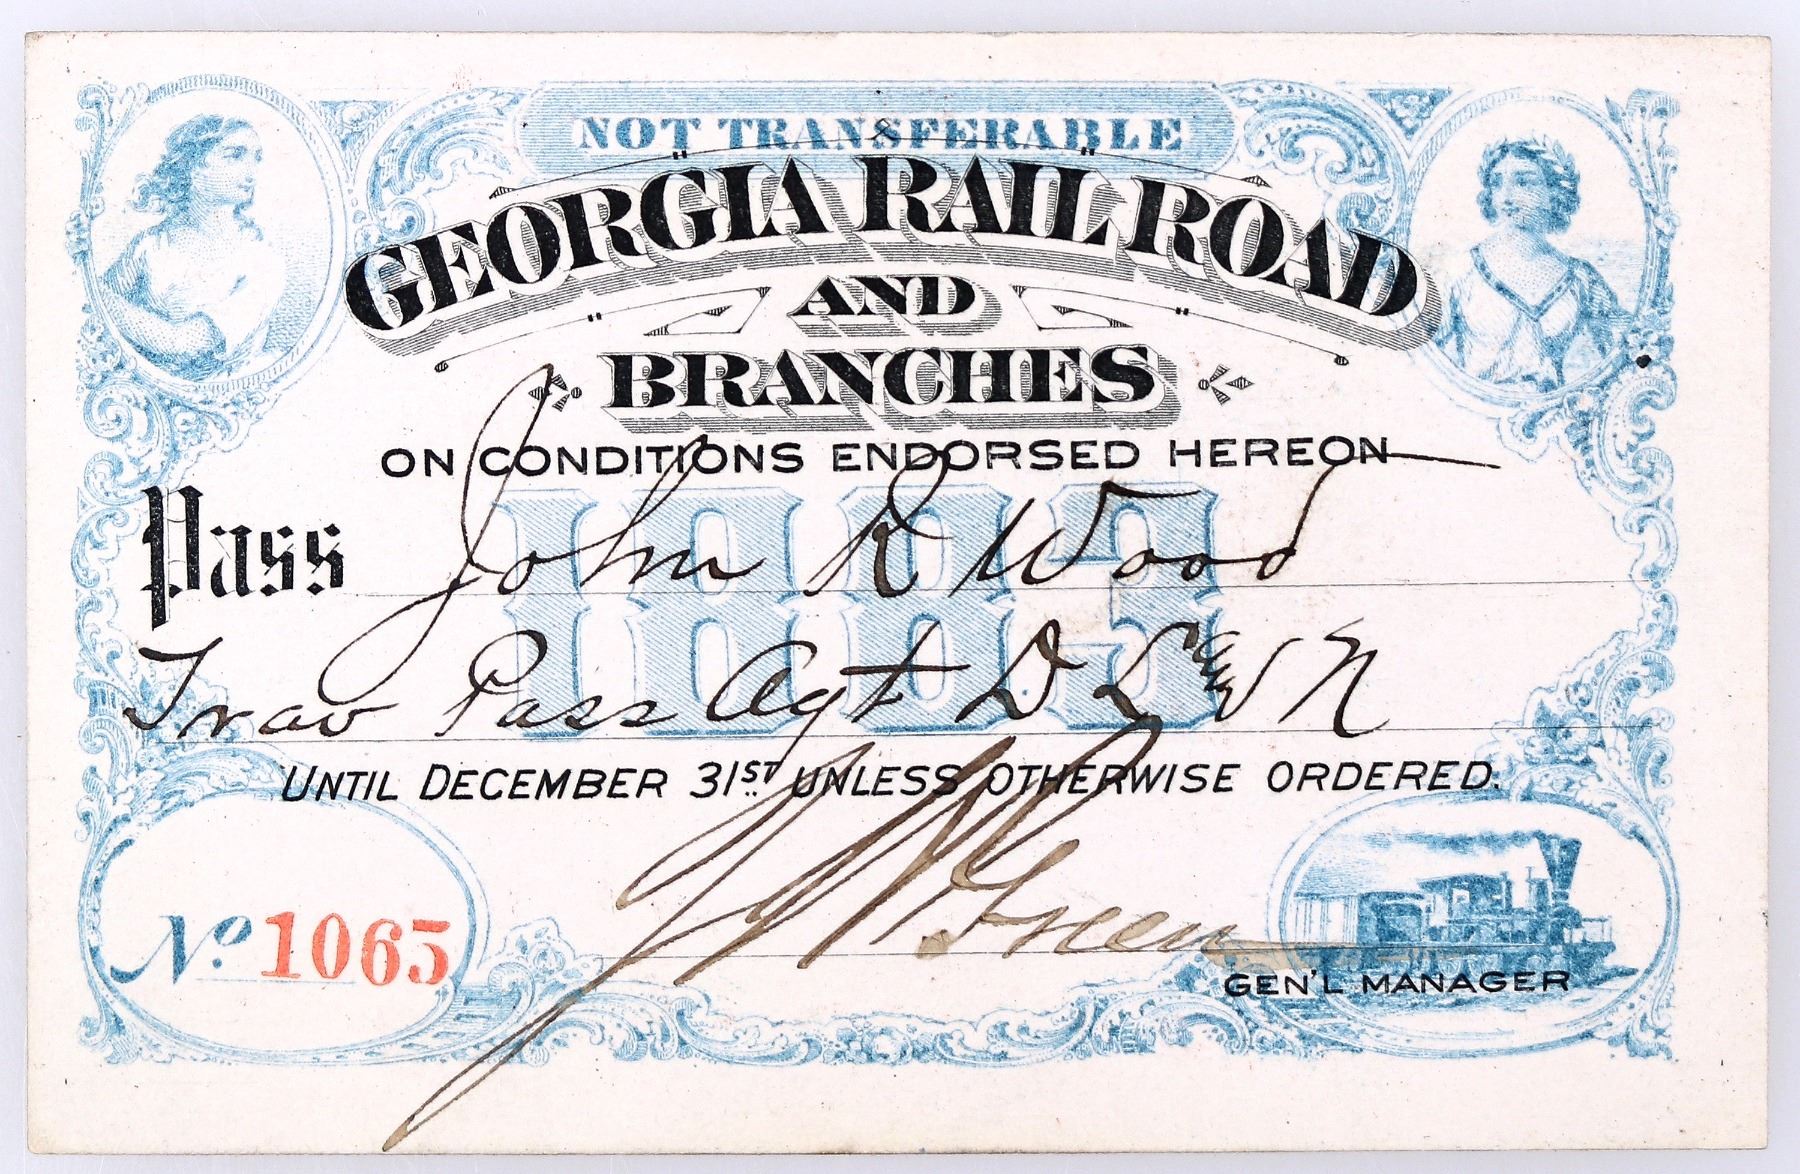 NOT TRANSFERABLE
GEORGIA RAIL ROAD
AND
BRANCHES
ON CONDITIONS ENDORSED HEREON
1883
Pass John R Wood
Trav Pass Agt D L & W R
UNTIL DECEMBER 31ST UNLESS OTHERWISE ORDERED.
No. 1065
Green
GEN'L MANAGER